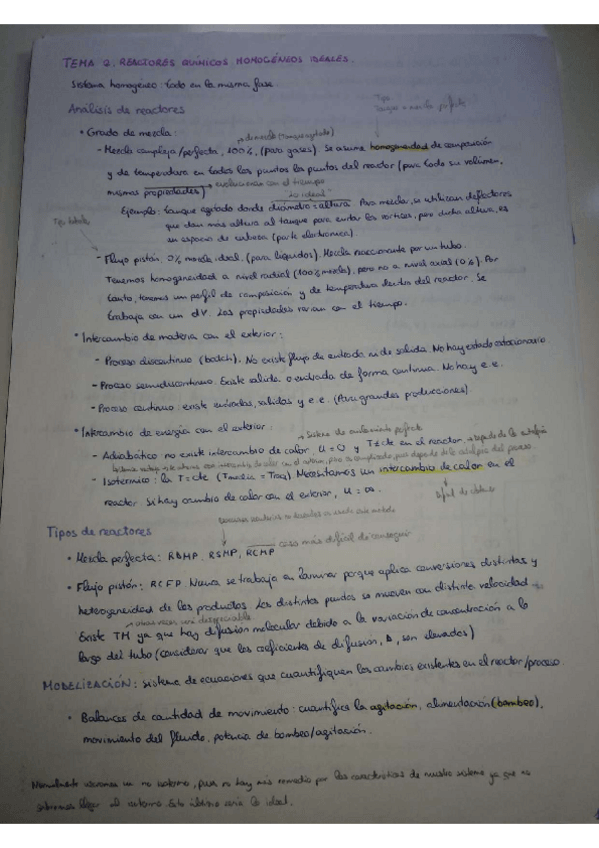 TEMA 2. REACTORES QUÍMICOS HOMOGÉNEOS IDEALES.
Sistema homogéneo: todo en la misma fase.
Tipo
Tanque o mezcla perfecta
Análisis de reactores
• Grado de mezcla:
de mezcla (Tanque agitado)
- Mezcla completa/perfecta, 100%, (para gases). Se asume homogeneidad de composición
y de temperatura en todos los puntos los puntos del reactor (para todo su volumen,
mismas propiedades) → evolucionan con el tiempo
lo ideal
Ejemplo: tanque agitado donde diámetro = altura. Para mezclar, se utilizan deflectores
Tipo tubular
que dan más altura al tanque para evitar los vórtices, pero dicha altura, es
un espacio de cabeza (parte electrónica).
- Flujo pistón, 0% mezcla ideal. (para líquidos). Mezcla reaccionante por un tubo.
Tenemos homogeneidad a nivel radial (100% mezcla), pero no a nivel axial (0%). Por
tanto, tenemos un perfil de composición y de temperatura dentro del reactor. Se
trabaja con un dV. Las propiedades varían con el tiempo.
• Intercambio de materia con el exterior:
- Proceso discontinuo (batch). No existe flujo de entrada ni de salida. No hay estado estacionario
- Proceso semidiscontinuo. Existe salida o entrada de forma continua. No hay e.e.
- Proceso continuo: existe entradas, salidas y e.e. (Para grandes producciones).
• Intercambio de energía con el exterior:
→ Sistema de aislamiento perfecto
- Adiabático: no existe intercambio de calor, U = 0 y T ≠ cte en el reactor, → depende de la entalpía
- Isotérmico: la T = cte (Tmedio = Treq) Necesitamos un intercambio de calor en el
reactor. Si hay cambio de calor con el exterior, U = ∞.
Difícil de obtener
Tipos de reactores
caso más difícil de conseguir
• Mezcla perfecta: RDMP, RSMP, RCMP
• Flujo pistón: RCFP. Nunca se trabaja en laminar porque aplica conversiones distintas y
heterogeneidad de los productos. Los distintos puntos se mueven con distinta velocidad
Existe TM ya que hay difusión molecular debido a la variación de concentración a lo
largo del tubo (considerar que los coeficientes de difusión, D, son elevados)
MODELIZACIÓN: sistema de ecuaciones que cuantifiquen los cambios existentes en el reactor/proceso.
• Balances de cantidad de movimiento: cuantifica la agitación, alimentación (bombeo),
movimiento del fluido, potencia de bombeo/agitación.
Normalmente usaremos un no isotermo, pues no hay más remedio por las características de nuestro sistema ya que no
sabremos llegar al isotermo. Este último sería lo ideal.